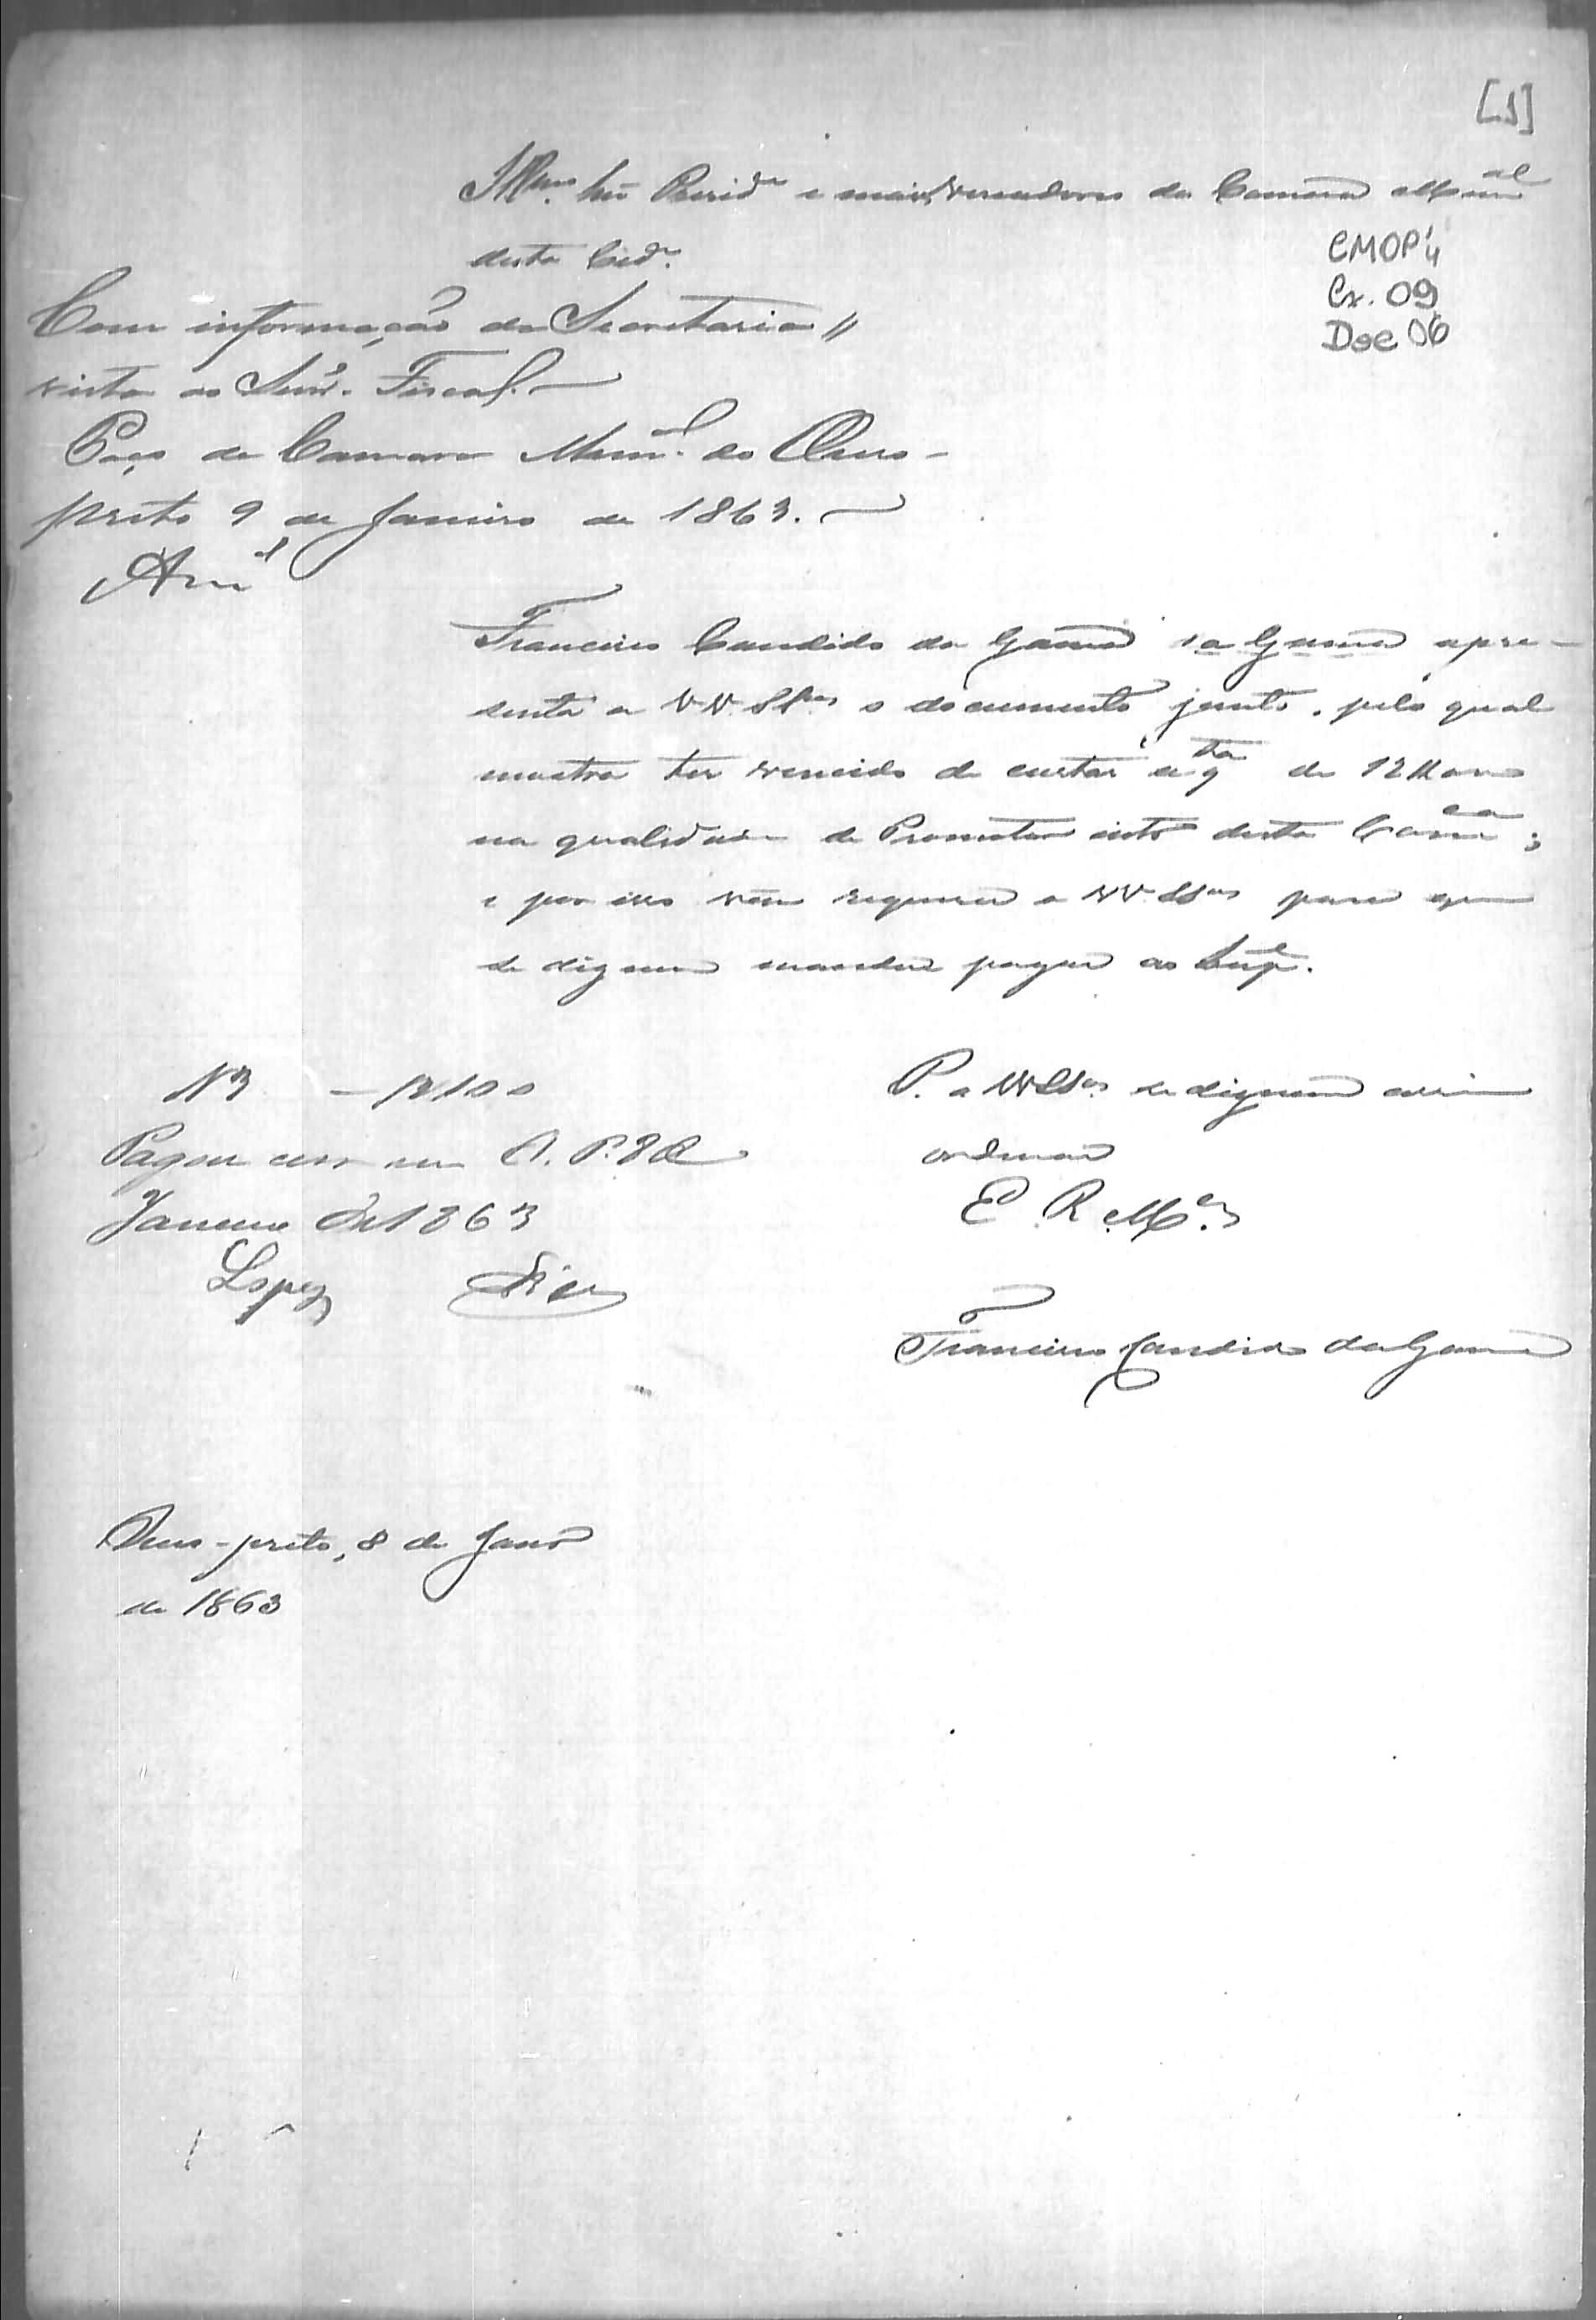 [1]
Illmos Snr Presidte e mais Vereadores da Camara Mcual
desta Cide.
CMOP 4
Cx. 09
Doc 06
Com informação da Secretaria //
vista ao Senr. Fiscal.
Paço da Camara Munal. do Ouro-
preto 9 de Janeiro de 1863.
Francisco Candido da Gama da Gama apre-
senta a VV. SSas o documento junto, pelo qual
mostra ter vencido de custas a qta de
na qualidade de Promotor desta Camca;
e por isso vem requerer a VV SSas para que
se dignem mandar pagar ao Supe.
N3
Pague
Janeiro de 1863
Lopes
P. a VV SSas. se dignem assim
ordenar
E. R. Mces
Francisco Candido da Gama
Ouro-preto, 8 de Janro
de 1863